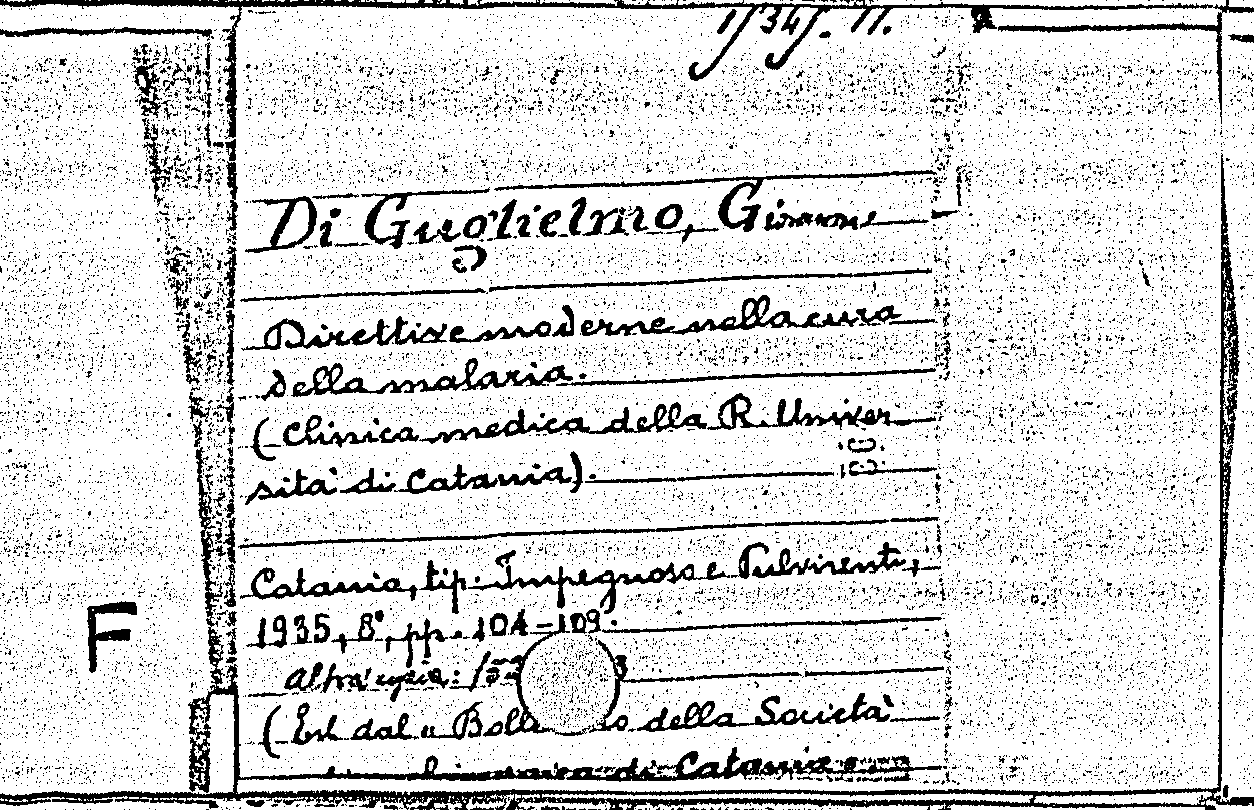 1/34/. 11.
Di Guglielmo, Giovanni
Direttive moderne nella cura
della malaria.
(Clinica medica della R. Univer
sità di Catania).
Catania, tip. Impegnoso e Pulvirenti,
1935, 8°, pp. 104-109.
F
Altra copia:
(Est. dal « Boll della Società
di Catania